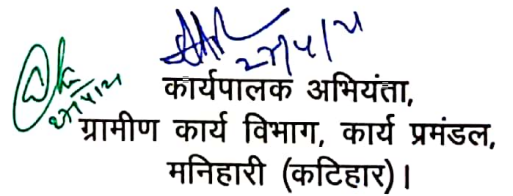 27/4/21
कार्यपालक अभियंता,
ग्रामीण कार्य विभाग, कार्य प्रमंडल,
मनिहारी (कटिहार)।